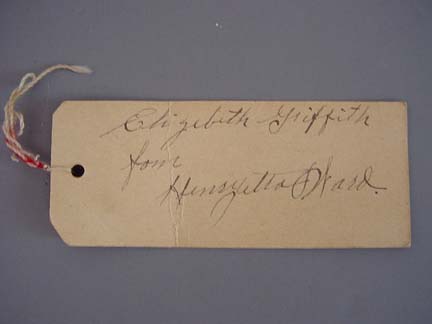 Elizabeth Griffith
fom
Henryetta Ward.